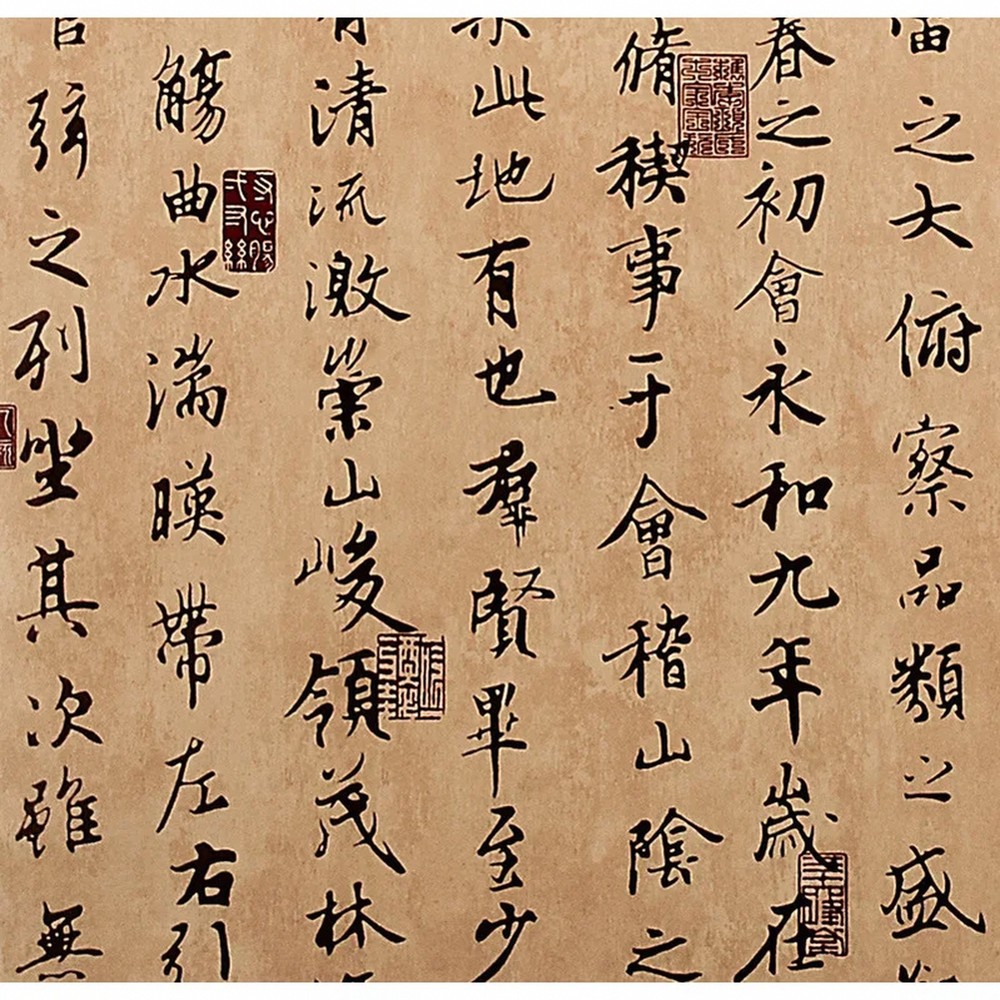 宙之大俯察品類之盛
春之初會永和九年歲在
脩稧事于會稽山陰之
此地有也羣賢畢至少
清流激崇山峻領茂林
觴曲水湍暎帶左右引
弦之列坐其次雖無